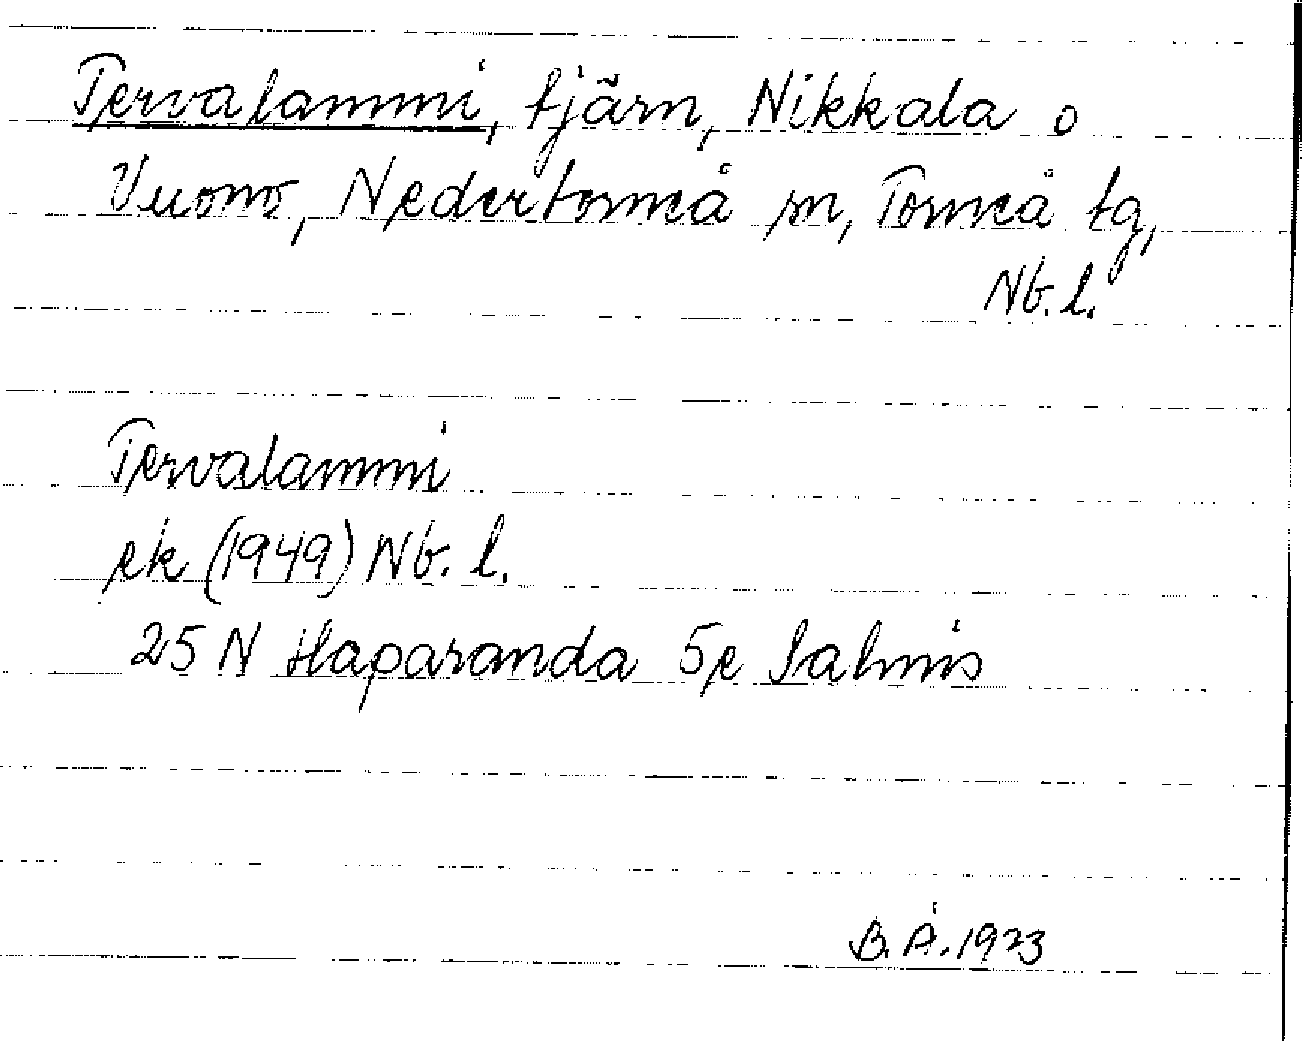 Tervalammi, tjärn, Nikkala o
Vuono, Nedertorneå sn, Torneå tg,
Nb. l.
Tervalammi
ek (1949) Nb. l.
25 N Haparanda 5e Salmis
B. Å. 1973